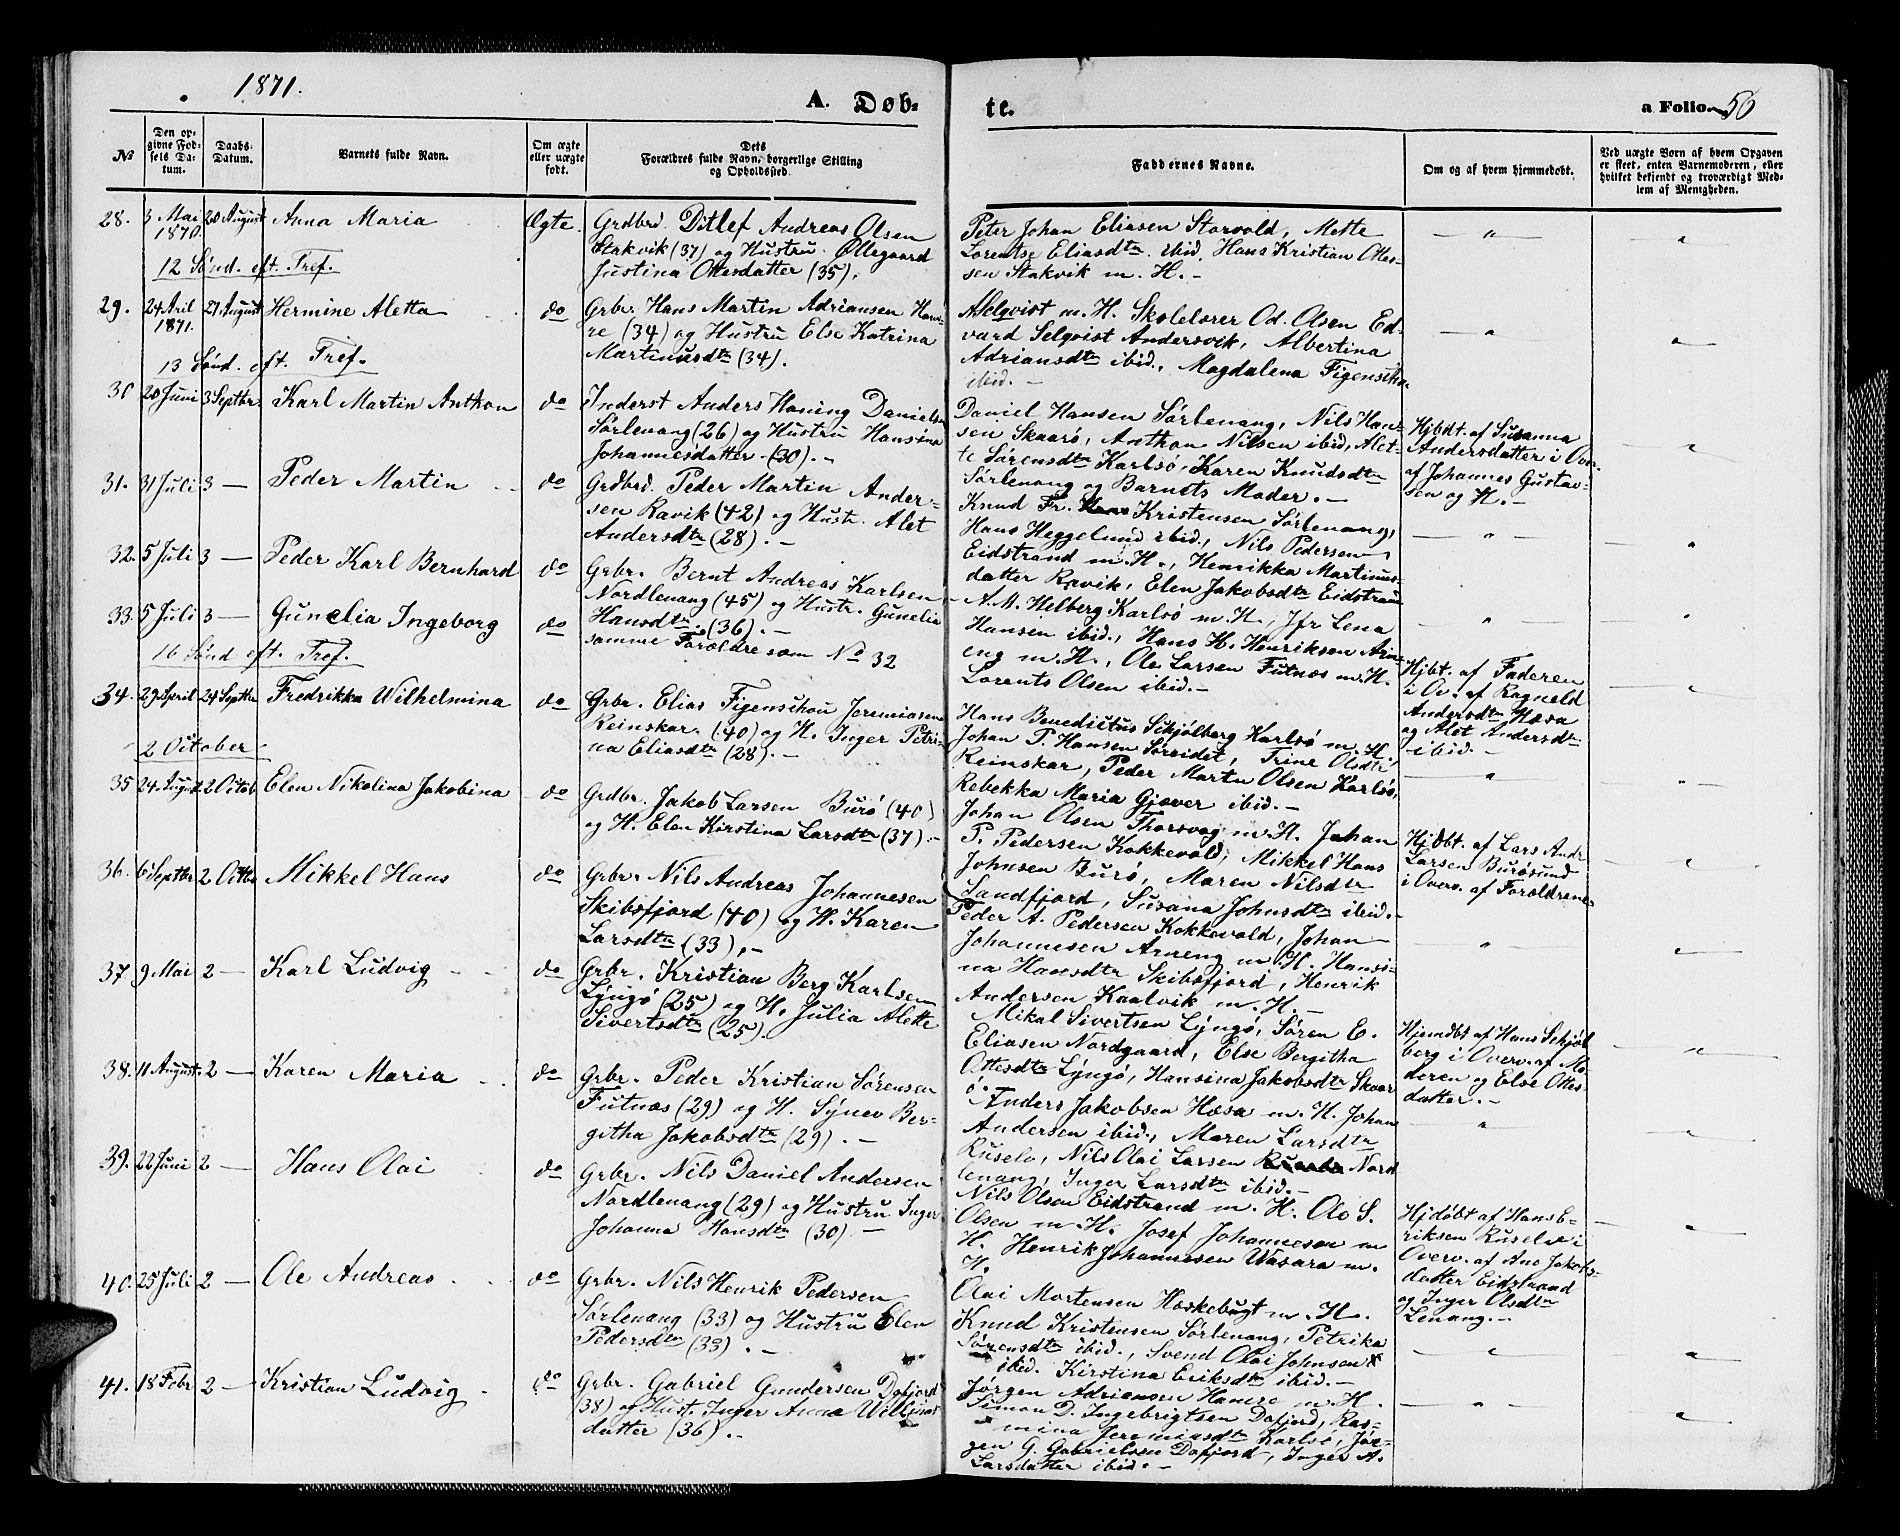 1871.
A. Døb-
te.
a Folio. 50
No
Den op-
givne Fød-
sels Da-
tum.
Daabs-
Datum.
Barnets fulde Navn.
Om ægte
eller uægte
født.
Dets
Forældres fulde Navn, borgerlige Stilling
og Opholdssted.
Faddernes Navne.
Om og af hvem hjemmedøbt.
Ved uægte Børn af hvem Opgaven
er skeet, enten Barnemoderen, eller
hvilket bekjendt og troværdigt Med-
lem af Menigheden.
28. 3 Mai 20 August Anna Maria Ægte. Grdbrd. Ditlef Andreas Olsen
1870. Stakvik (37) og Hustru Ollegaard
12 Sønd. eft. Tref. Justina Ottesdatter (35).
Peter Johan Eliasen Storvold, Mette
Lorentse Eliasdtr ibid. Hans Kristian Ottes-
sen Stakvik m. H. -
29. 24 Aril 27 August Hermine Aletta do Grbr. Hans Martin Adriansen Ham-
1871. re (34) og Hustru Else Katrina
13 Sønd. eft. Tref. Martinusdtr (34).
Selqvist m. H. Skolelærer Od. Olsen Ed-
vard Selqvist Andersvik, Albertina
Adriansdtr ibid., Magdalena Figenschou
ibid. -
30 20 Juni 3 Septbr. Karl Martin Anthon do Inderst Anders Haning Danielsen
Sørlenang (26) og Hustru Hansina
Johannesdatter (30). -
Daniel Hansen Sørlenang, Nils Han-
sen Skaarø, Anthon Nilsen ibid, Alet-
te Sørensdtr Karlsø, Karen Knudsdtr
Sørlenang og Barnets Moder. -
Hjbdt. af Susanna
Andersdatter i Ov.
af Johannes Gustav-
sen og H. -
31. 31 Juli 3 — Peder Martin do Grdbrd. Peder Martin Ander-
sen Ravik (42) og Hustr. Alet
Andersdtr (28). -
Knud Fr. Kristensen Sørlenang,
Hans Heggelund ibid., Nils Pedersen
Eidstrand m. H., Henrikka Martinus-
datter Ravik, Elen Jakobsdtr Eidstrand
32. 5 Juli 3 — Peder Karl Bernhard do Grbr. Bernt Andreas Karlsen
Nordlenang (45) og Hustr. Gunelia
Hansdtr. (36). -
33. 5 Juli 3 — Gunelia Ingeborg do samme Forældre som No 32
16 Sønd eft. Tref.
A. M. Helberg Karlsø m. H., Jfr Lena
Hansen ibid., Hans H. Henriksen Arn-
eng m. H., Ole Larsen Futnæs m. H.
Lorents Olsen ibid. -
34. 29 April 24 Septbr Fredrikka Wilhelmina do Grbr. Elias Figenschou Jeremiasen
Reinskar. (40) og H. Inger Petri-
na Eliasdtr (28). -
2 October
Hans Benedictus Schjølberg Karlsø m. H.
Johan P. Hansen Søreidet, Trine Olsdtr
Reinskar, Peder Martn Olsen Karlsø,
Rebekka Maria Gjæver ibid. -
Hjbt. af Faderen
i Ov. af Ragneld
Andersdtr Hæsa
og Alet Andersdtr
ibid. -
35 24 August 2 Octob Elen Nikolina Jakobina do Grdbr. Jakob Larsen Burø (40)
og H. Elen Kirstina Larsdtr (37). -
Johan Olsen Thorsvag m. H. Johan
P. Pedersen Kokkevold, Mikkel Hans
Johnsen Burø, Maren Nilsdtr
Sandfjord, Susana Johnsdtr ibid. -
Hjdbt. af Lars Andr
Larsen Burøsund
i Overv. af Forældrene
36. 6 Septbr 2 Octbr Mikkel Hans do Grbr. Nils Andreas Johannesen
Skibsfjord (40) og H. Karen
Larsdtr (33). -
Peder A. Pedersen Kokkevold, Johan
Johannesen Arneng m. H. Hansi-
na Hansdtr Skibsfjord, Henrik
Andersen Kaalvik m. H. -
37 9 Mai 2 — Karl Ludvig do Grbr. Kristian Berg Karlsen
Lyngø (25) og H. Julia Alette
Sivertsdtr (25).
Mikal Sivertsen Lyngø, Søren E.
Eliasen Nordgaard, Else Bergitha
Ottesdtr Lyngø, Hansina Jakobsdtr Skaar
ø.
Hjemdbt af Hans Schjøl
berg i Overv. af Mo-
deren og Else Ottes-
datter. -
38. 11 August. 2 — Karen Maria do Grbr. Peder Kristian Sørensen
Futnæs (29) og H. Synev Ber-
githa Jakobsdtr (29). -
Anders Jakobsen Hæsa m. H. Johan
Andersen ibid., Maren Larsdtr
Ruselv, Nils Olai Larsen Nord
lenang, Inger Larsdtr ibid. -
39. 22 Juni 2 — Hans Olai do Grbr. Nils Daniel Andersen
Nordlenang (29) og Hustru Inger
Johanna Hansdtr (30) -
Nils Olsen Eidstrand m. H. Ole S.
Olsen m. H. Josef Johannesen m
H. Henrik Johannesen Wasara m.
H.
Hjdøbt af Hans E-
riksen Ruselv i
Overv. af Ane Jakobs-
datter Eidstrand
og Inger Olsdtr
Lenang. -
40. 25 Juli 2 — Ole Andreas do Grbr. Nils Henrik Pedersen
Sørlenang (33) og Hustru Elen
Pedersdtr (33). -
Olai Mortensen Hæskebugt m. H.
Knud Kristensen Sørlenang, Petrika
Sørensdtr ibid., Svend Olai Johnsen
ibid. Kirstina Eriksdtr ibid. -
41. 18 Febr 2 — Kristian Ludvig do Grbr. Gabriel Gundersen Dafjord
(38) og Hust. Inger Anna
datter (36). -
Jørgen Adriansen Hamre m H.
Simon D. Ingebrigtsen Dafjord, Ras-
mina Jeremiasdtr Karlsø, Jør-
gen G. Gabrielsen Dafjord, Inger A.
Larsdatter ibid. -